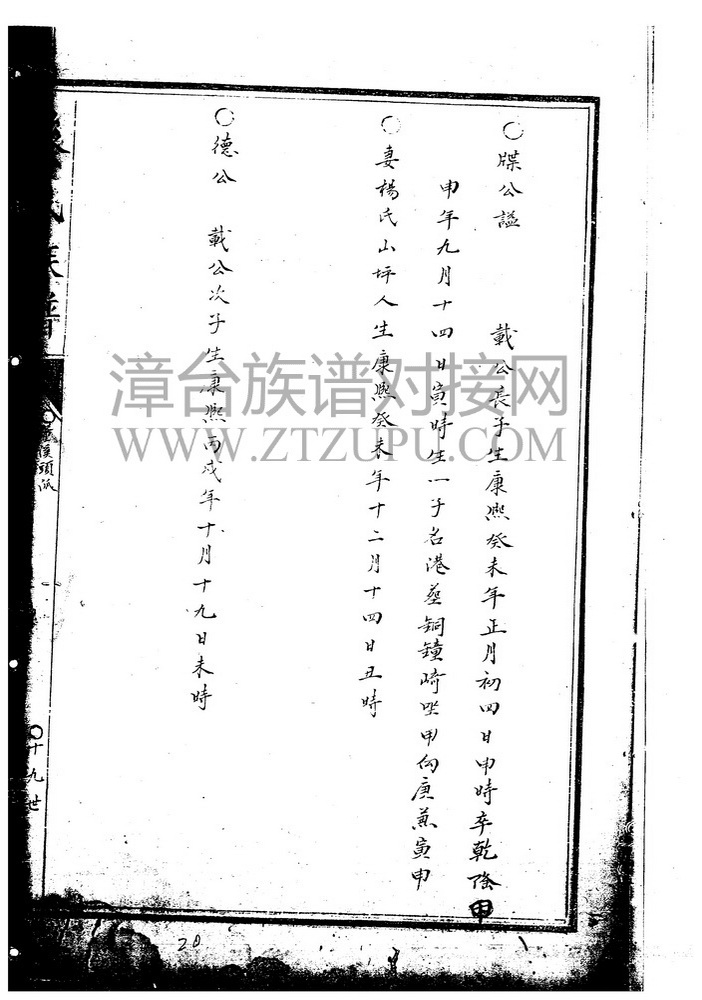 ○牒公謚 載公長子生康熙癸未年正月初四日申時卒乾隆甲
申年九月十四日寅時生一子名港葬銅鐘崎坐甲向庚兼寅申
○妻楊氏山坪人生康熙癸未年十二月十四日丑時
○德公 載公次子生康熙丙戌年十月十九日未時
氏族譜
○十九世
20
漳台族谱对接网
WWW.ZTZUPU.COM